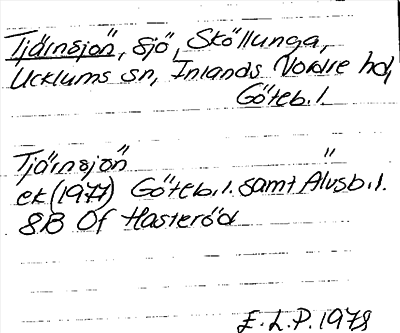 Tjärnsjön, sjö, Sköllunga,
Ucklums sn, Inlands Nordre hd,
Göteb. l.
Tjärnsjön "
ek (1977) Göteb. l. samt Älvsb. l.
8B 0f Hasteröd
E. L. P. 1978